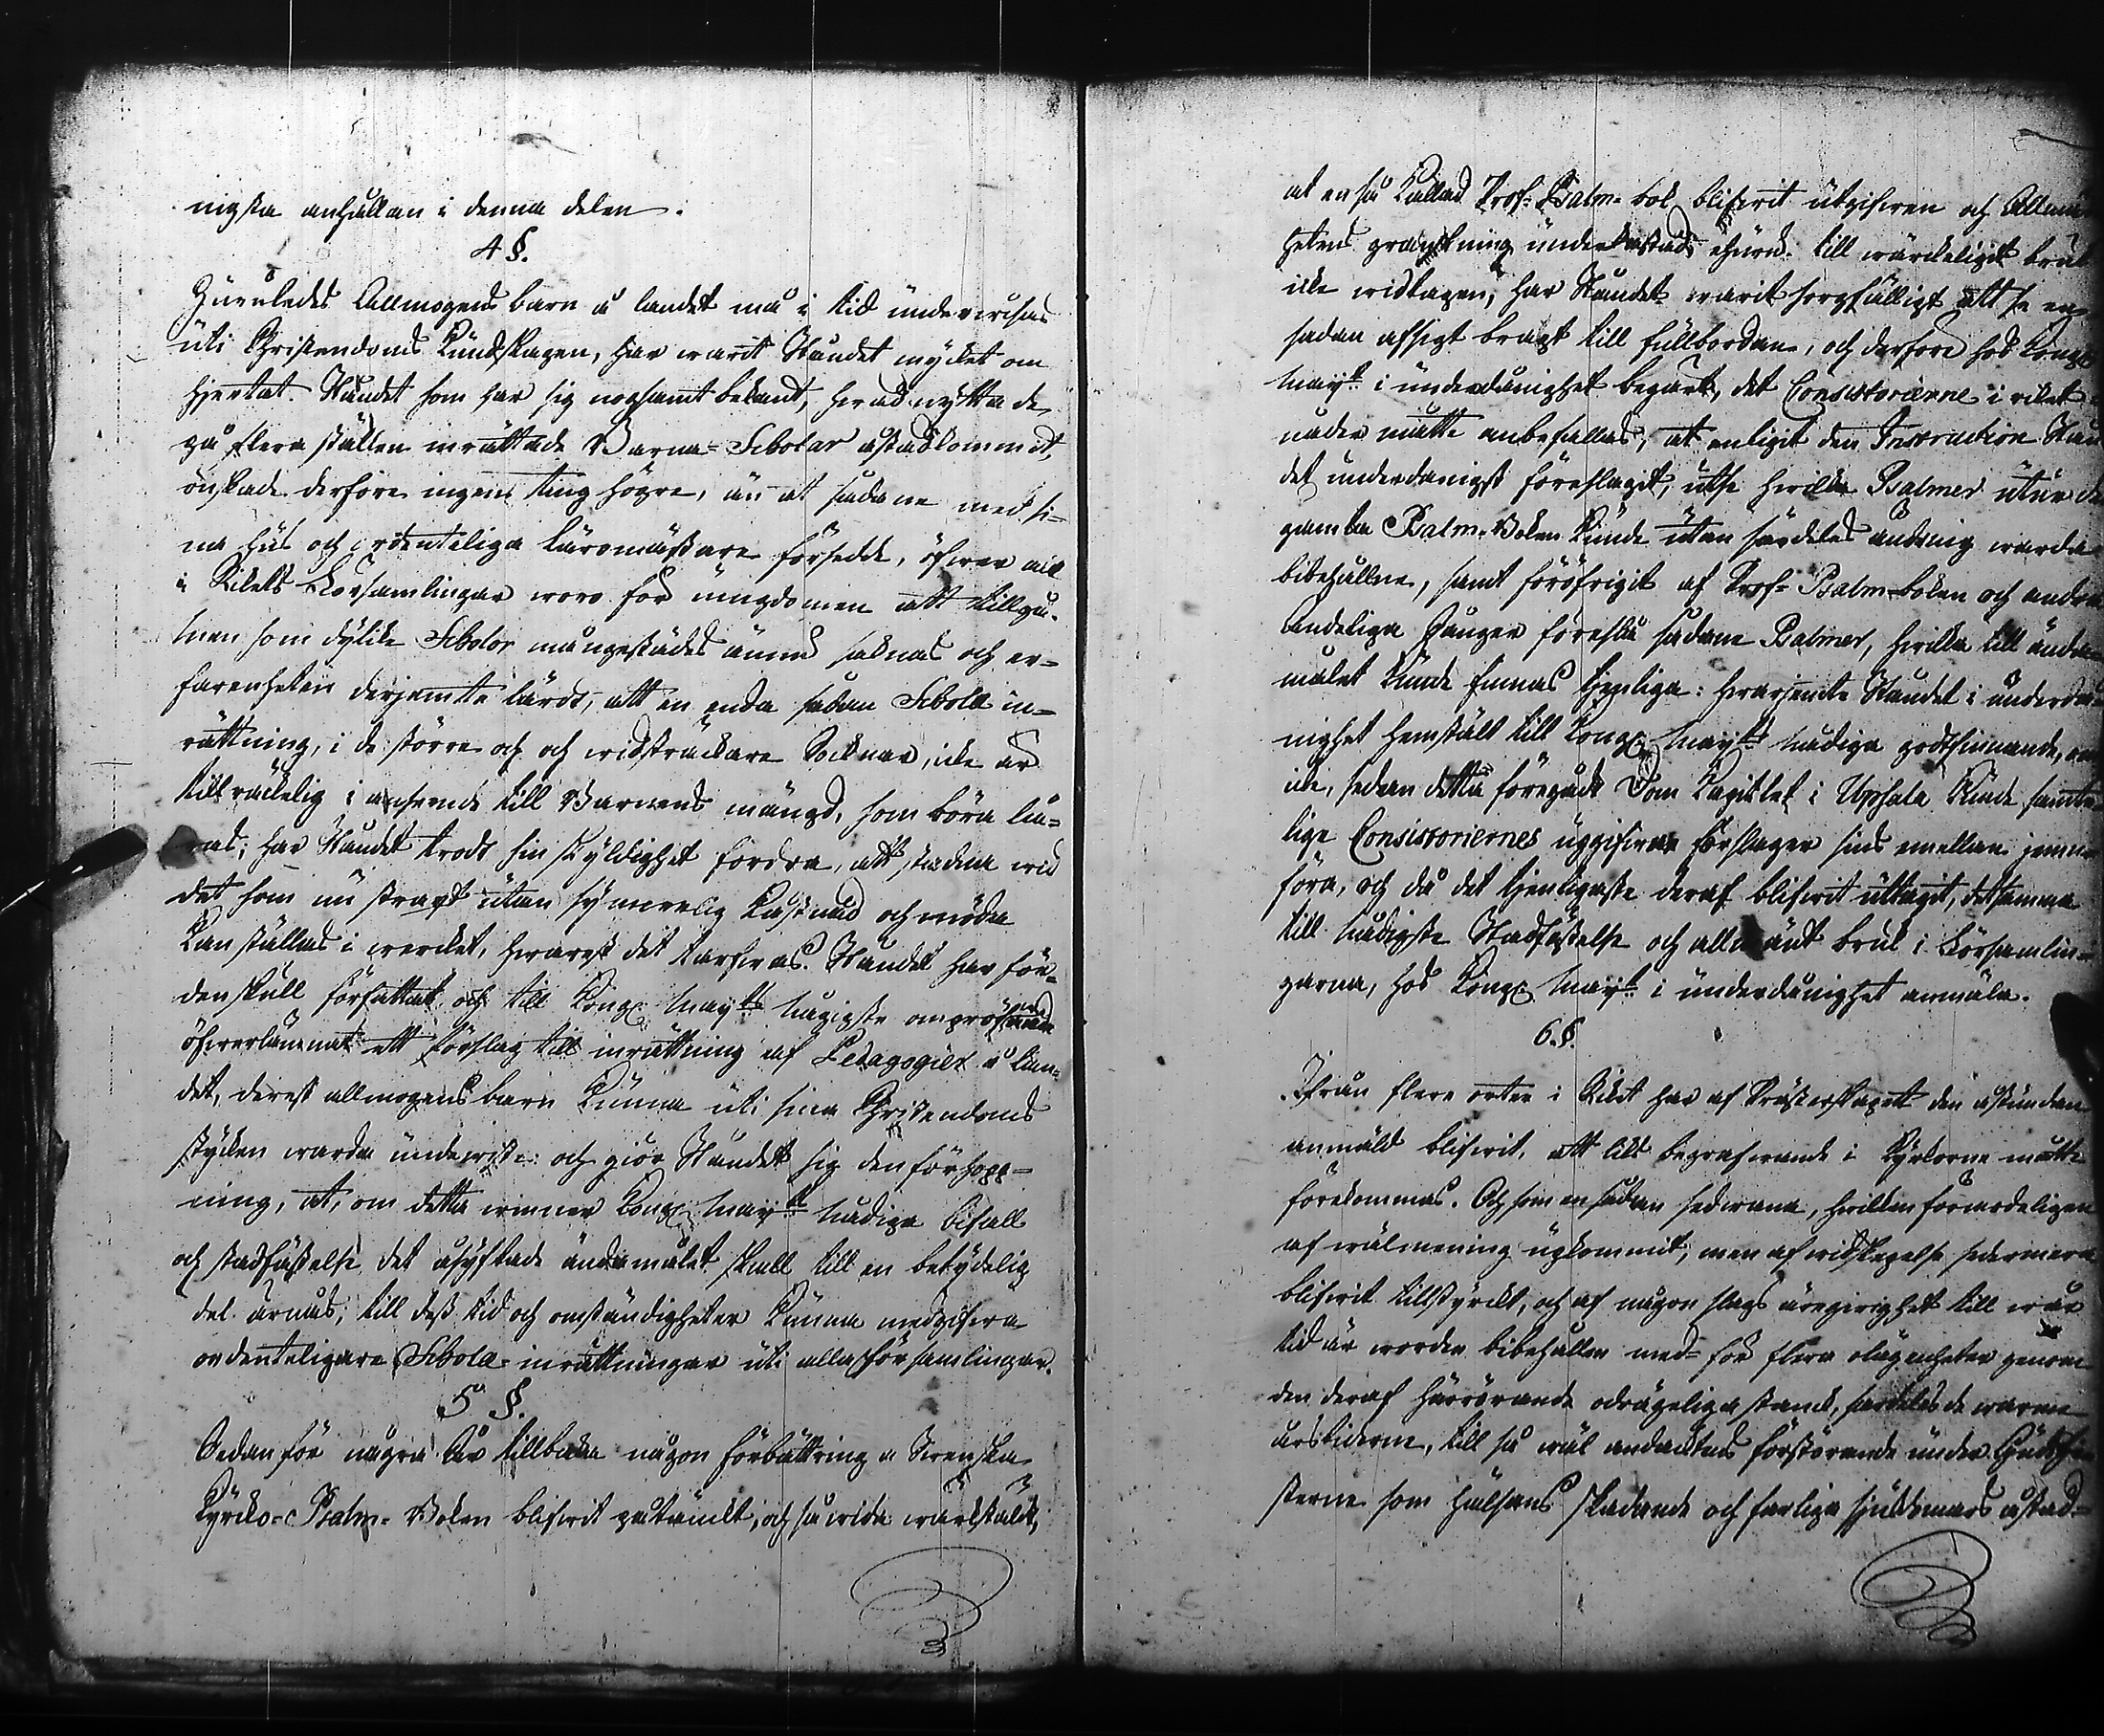 nigsta anhållan i denna delen.
4 §.
Huruledes Allmogens barn å landet må i tid underwisas
uti Christendoms Kundskapen, har warit Ståndet mycket om
hjertat. Ståndet som har sig nogsamt bekant, hwad nytta de
på flera ställen inrättade Barna-Scholar åstadkommit,
önskade derföre ingen ting högre, än at sådane med si-
na hus och ordenteliga Läromästare försedde, öfwer alt
i Rikets Församlingar woro för ungdomen att tillgå.
Men som dylike Scholor mångestädes ännu saknas och er-
farenheten derjemte lärdt, att en enda sådan Schola in-
rättning, i de större och och widsträcktare Socknar, icke är
tillräckelig i anseende till Barnens mängd, som böra lä-
ras; har Ståndet trodt sin skyldighet fordra, att stadna wid
det som nu strapt utan synnerlig kostnad och möda
Kan ställas i wercket, hwarest det tarfwas. Ståndet har för-
denskull författat och till Kongl. Mayts nådigste ompröfwande
öfwerlämnat ett förslag till inrättning af Pedagogier å lan-
det, derest allmogens barn Kunna uti sina Christendoms
stycken warda underwiste: och giör Ståndet sig den förhopp-
ning, at, om detta winner Kongl. Mayts nådiga bifall
och stadfästelse det åsyftade ändamålet skall till en betydelig
del ärnås; till dess tid och omständigheter Kunna medgifwa
ordenteligare Schola-inrättningar uti alla församlingar.
5 §.
Sedan för några År tillbaka någon förbättring å Swenska
Kyrko-Psalm-Boken blifwit påtänckt, och så wida wärkstäldt,
at en så Kallad Prof-Psalm-bok blifwit utgifwen och Allmän-
hetens granskning underkastad, ehuru till wärckeligit bruk
icke widtagen, har Ståndet warit sorgfälligt att se en
sådan afsigt bragt till fullbordan, och derföre hos Kongl.
Mayt. i underdånighet begärt, det Consistorierne i riket
nåder måtte anbefallas, at enligit den Instruction Stån-
det underdånigst föreslagit, utse hwilka Psalmer utur de
gamla Psalm-Boken Kunde utan särdeles ändring warda
bibehållne, samt föröfrigit af Prof-Psalm-boken och andra
Andeliga Sånger föreslå sådane Psalmer, hwilka till ända-
målet Kunde finnas tjenliga: hwarjemte Ståndet i underdå-
nighet hemstält till Kongl. Mayts nådiga godtfinnande, om
icke, sedan detta föregådt Dom Kapitlet i Upsala Kunde samte-
lige Consistoriernes uppgifwne förslager sins emellan jemn-
föra, och då det tjenligaste deraf blifwit uttagit, det samma
till nådigste Stadfästelse och allmänt bruk i Församlin-
garna, hos Kongl. Mayt. i underdånighet anmäla.
6. §.
Ifrån flere orter i Riket har af Prästerskapet den åstundan
anmäld blifwit, att liks begrafwande i Kyrkorne måtte
förekommas. Och som en sådan sedwana, hwilken förmodeligen
af wälmening upkommit, men af widskepelse sedermera
blifwit tillstyrckt, och af någon slags äregirighet till wår
tid är worden bibehållen med för flera olägenheter genom
den deraf härrörande odrägeliga stanck, särdeles de warma
årstiderne, till så wäl andacktens förstörande under Gudstjen-
sterne som hälsans skadande och farliga sjukdomars åstad-